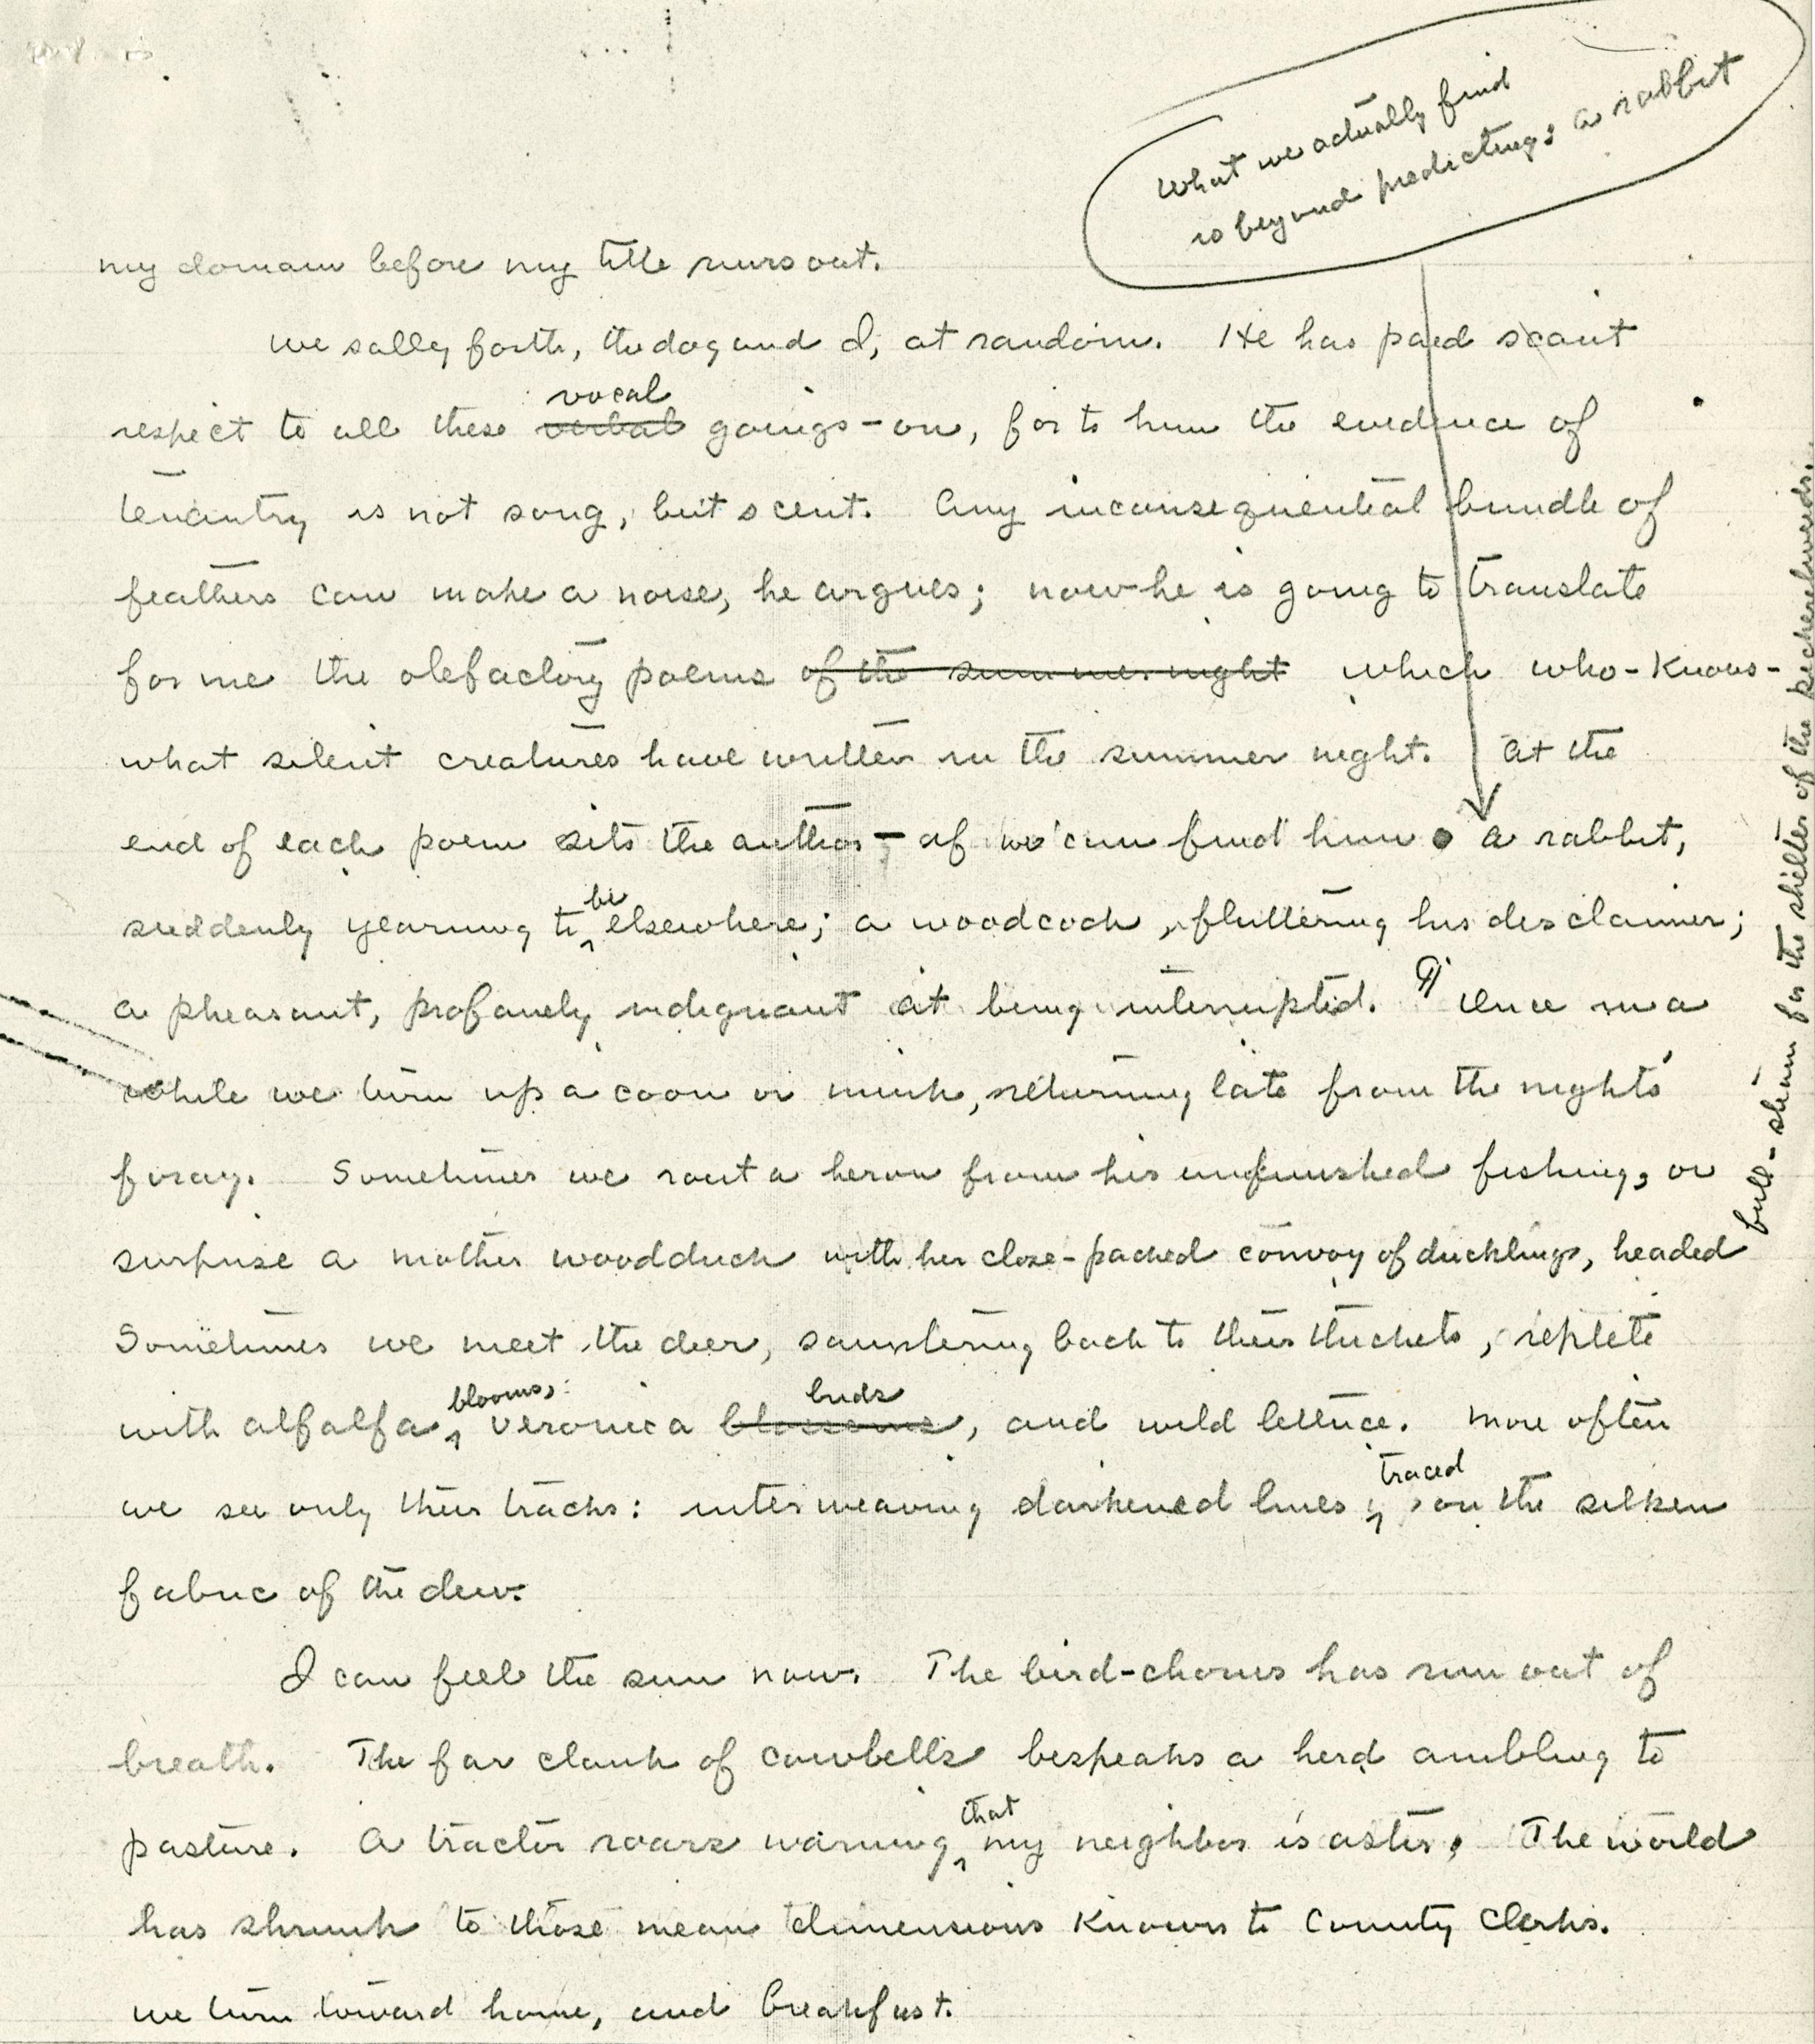 What we actually find
is beyond predicting: a rabbit
my domain before my title runs out.
We sally forth, the dog and I, at random. He has paid scant
vocal
respect to all these verbal goings-on, for to him the evidence of
tenantry is not song, but scent. Any inconsequential bundle of
feathers can make a noise, he argues; now he is going to translate
for me the olefactory poems of the summer night which who-knows-
what silent creatures have written in the summer night. At the
end of each poem sits the author - if we can find him. A rabbit,
be
suddenly yearning to elsewhere; a woodcock, fluttering his disclaimer;
a pheasant, profanely indignant at being interrupted. ¶ Once in a
while we turn up a coon or mink, returning late from the nights'
foray. Sometimes we rout a heron from his unfinished fishing, or
surprise a mother woodduck with her close-packed convoy of ducklings, headed
full-steam for the shelter of the pickerelweeds.
Sometimes we meet the deer, sauntering back to their thickets, replete
blooms, buds
with alfalfa, veronica blossoms, and wild lettuce. More often
traced
we see only their tracks: interweaving darkened lines, on the silken
fabric of the dew.
I can feel the sun now. The bird-chorus has run out of
breath. The far clank of cowbells bespeaks a herd ambling to
that
pasture. A tractor roars warning my neighbor is astir. The world
has shrunk to those mean dimensions known to County Clerks.
We turn toward home, and breakfast.